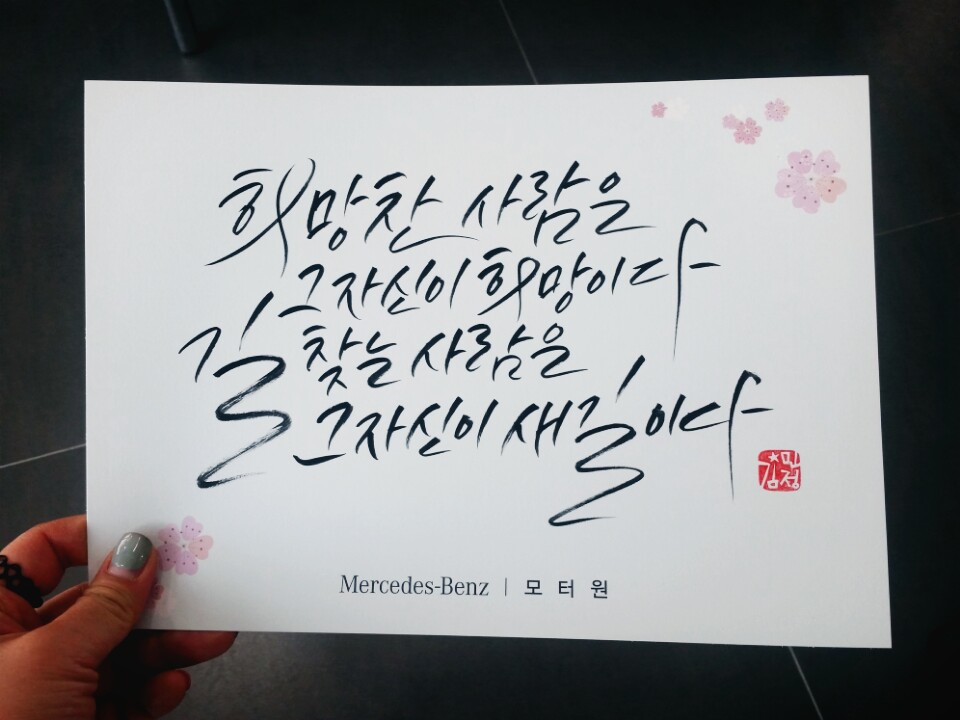 희망찬 사람은
그 자신이 희망이다
길 찾는 사람은
그 자신이 새 길이다
김민정
Mercedes-Benz | 모터원